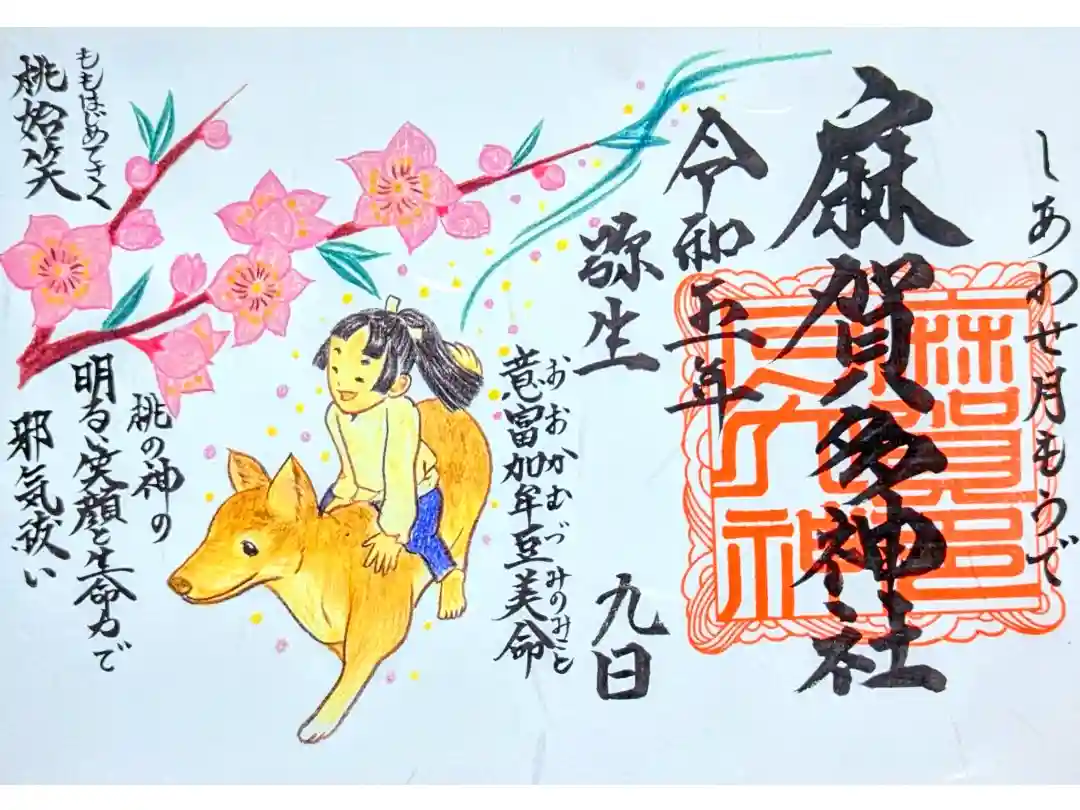 しあわせ月もうで
麻賀多神社
令和五年
弥生
九日
おおかむづみのみこと
意富加牟豆美命
桃の神の
明るい笑顔と生命力で
邪気祓い
ももはじめてさく
桃始笑